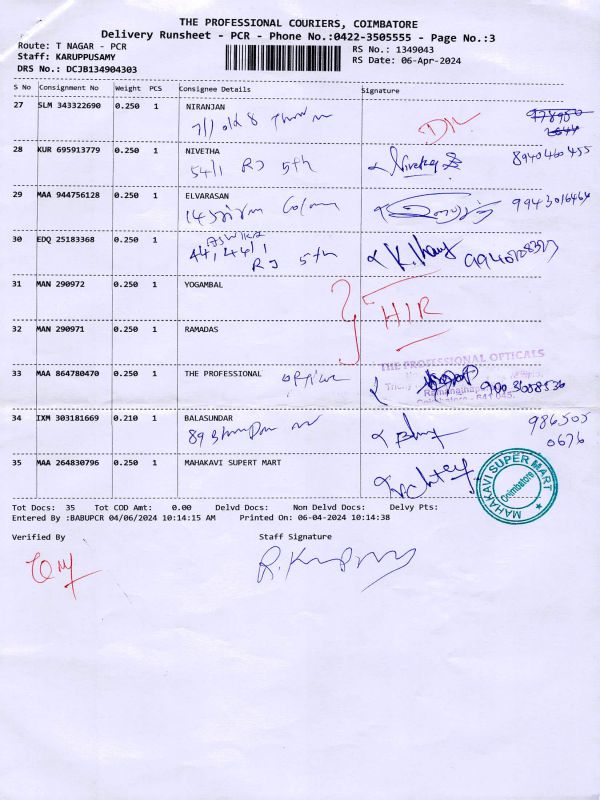 THE PROFESSIONAL COURIERS, COIMBATORE
Delivery Runsheet - PCR - Phone No.:0422-3505555 - Page No.:3
Route: T NAGAR - PCR
RS No.: 1349043
Staff: KARUPPUSAMY
RS Date: 06-Apr-2024
DRS No.: DCJB134904303
S No Consignment No Weight PCS Consignee Details Signature
27 SLM 343322690 0.250 1 NIRANJAN
7/1 old 8
28 KUR 695913779 0.250 1 NIVETHA 8940460455
54/1 RJ 5th
29 MAA 944756128 0.250 1 ELVARASAN 9943016464
14 Colony
30 EDQ 25183368 0.250 1 ASWIKA
44, 44/1
RJ 5th
31 MAN 290972 0.250 1 YOGAMBAL
HIR
32 MAN 290971 0.250 1 RAMADAS
THE PROFESSIONAL OPTICALS
33 MAA 864780470 0.250 1 THE PROFESSIONAL
Ramanathapuram
Coimbatore - 641 045.
34 IXM 303181669 0.210 1 BALASUNDAR 986505
89 0676
35 MAA 264830796 0.250 1 MAHAKAVI SUPERT MART
MAHAKAVI SUPER MART
Coimbatore
Tot Docs: 35 Tot COD Amt: 0.00 Delvd Docs: Non Delvd Docs: Delvy Pts:
Entered By :BABUPCR 04/06/2024 10:14:15 AM Printed On: 06-04-2024 10:14:38
Verified By Staff Signature